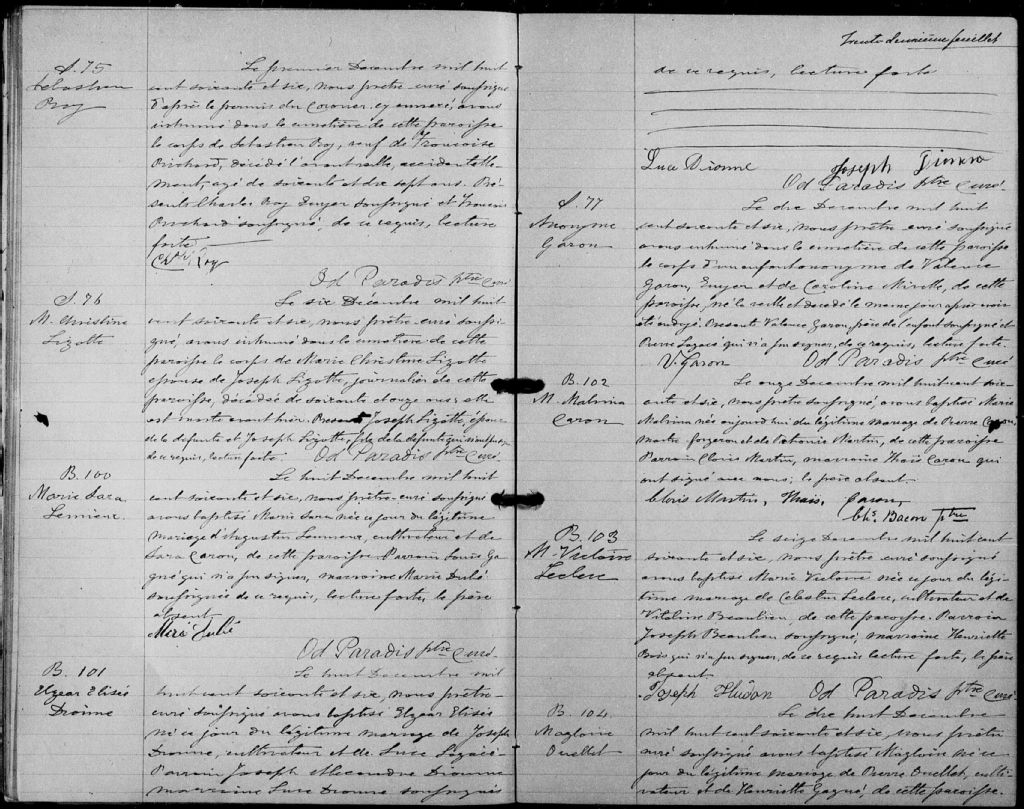 S. 75
Sébastien
Roy
Le premier Decembre mil huit
cent soixante et six, nous prêtre curé soussigné
d'après le permis du Coroner cy annexé, avons
inhumé dans le cimetière de cette paroisse
le corps de Sébastien Roy, veuf de Françoise
Pinchard, décédé l'avant veille, accidentelle-
ment, agé de soixante et dix sept ans. Pré-
sents Charles Roy soussigné et
soussigné, de ce requis, lecture
faite
Chs Roy
Od Paradis ptre Curé
S. 76
M. Christine
Lizotte
Le six Decembre mil huit
cent soixante et six, nous prêtre-curé soussi-
gné, avons inhumé dans le cimetière de cette
paroisse le corps de Marie Christine Lizotte
épouse de Joseph Lizotte, journalier de cette
paroisse, décédée de soixante et onze ans; elle
est morte avant hier. Presents Joseph Lizotte, époux
de la defunte et Joseph Lizotte, fils de la defunte qui n'ont pu signer
de ce requis, lecture faite. Od Paradis ptre Curé.
B. 100
Marie Sara
Lemieux
Le huit Decembre mil huit
cent soixante et six, nous prêtre-curé soussigné
avons baptisé Marie Sara née ce jour du légitime
mariage d'Augustin Lemieux, cultivateur et de
Sara Caron, de cette paroisse. Parrain Louis Ga-
gné qui n'a pu signer, marraine Marie Dubé
soussignée de ce requis, lecture faite, le père
absent
Mari Dubé
Od Paradis ptre Curé.
B. 101
Elzear Elisée
Dionne
Le huit Decembre mil
huit cent soixante et six, nous prêtre-
curé soussigné avons baptisé Elzear Elisée
né ce jour du légitime mariage de Joseph
Dionne, cultivateur et de Luce Lizotte
Parrain Joseph Alexandre Dionne
marraine Luce Dionne soussignés
Trente deuxième feuillet
de ce requis, lecture faite
Luce Dionne Joseph Dionne
Od Paradis ptre Curé.
S. 77
Anonyme
Garon
Le dix Decembre mil huit
cent soixante et six, nous prêtre curé soussigné
avons inhumé dans le cimetière de cette paroisse
le corps d'un enfant anonyme de Valence
Garon, Ecuyer et de Caroline Miville, de cette
paroisse, né la veille et décédé le meme jour après avoir
été ondoyé. Presents Valence Garon, père de l'enfant soussigné et
Pierre qui n'a pu signer, de ce requis, lecture faite.
V. Garon Od Paradis ptre Curé
B. 102
M. Malvina
Caron
Le onze Decembre mil huit cent soix-
ante et six, nous prêtre soussigné, avons baptisé Marie
Malvina née aujourd'hui du légitime mariage de Pierre Caron,
maitre forgeron et de Martin, de cette paroisse
Parrain Cloris Martin, marraine Thais Caron qui
ont signé avec nous; le père absent.
Cloris Martin, Thais, Caron,
Chs. Bacon Ptre
B. 103
M. Victoire
Leclerc
Le seize Decembre mil huit cent
soixante et six, nous prêtre curé soussigné
avons baptisé Marie Victoire née ce jour du légi-
time mariage de Celestin Leclerc, cultivateur et de
Vitaline Beaulieu, de cette paroisse. Parrain
Joseph Beaulieu soussigné, marraine Henriette
Bois qui n'a pu signer, de ce requis lecture faite, le père
absent.
Joseph Hudon Od Paradis ptre Curé
B. 104
Magloire
Ouellet
Le dix huit Decembre
mil huit cent soixante et six, nous prêtre
curé soussigné avons baptisé Magloire né ce
jour du légitime mariage de Pierre Ouellet, culti-
vateur et de Henriette Gagné, de cette paroisse.